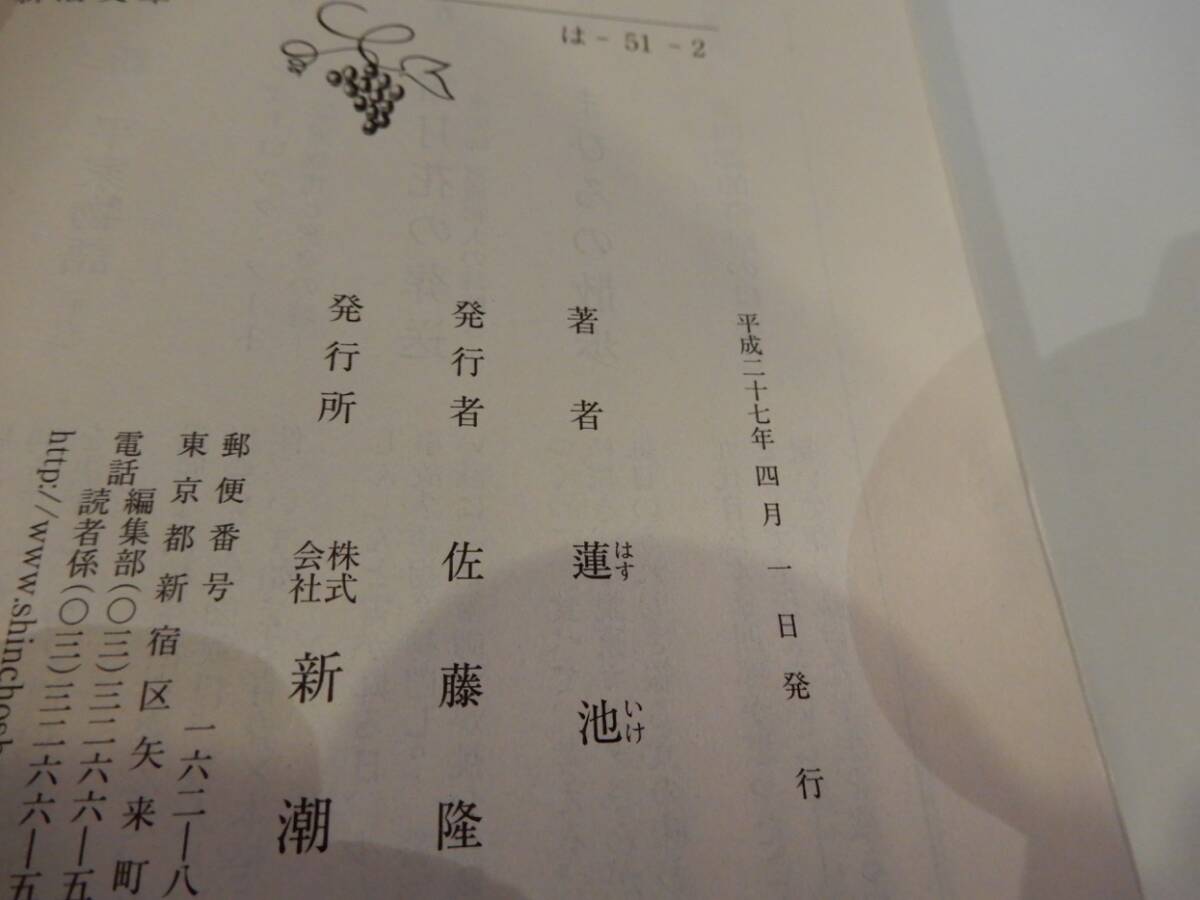 は-51-2
平成二十七年四月一日発行
著者 蓮池
はす いけ
発行者 佐藤隆
発行所 株式会社 新潮
郵便番号 一六二―八
東京都新宿区矢来町
電話 編集部(〇三)三二六六―五
読者係(〇三)三二六六―五
http://www.shinchosh